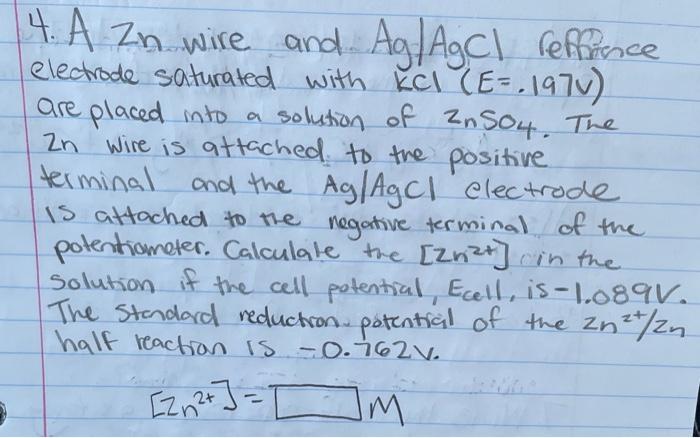 4. A Zn wire and Ag/AgCl reffrince
electrode saturated with KCl (E=.197V)
are placed into a solution of ZnSO4. The
Zn wire is attached to the positive
terminal and the Ag/AgCl electrode
is attached to the negative terminal of the
potentiometer. Calculate the [Zn²⁺] in the
solution if the cell potential, Ecell, is -1.089V.
The standard reduction potential of the Zn²⁺/Zn
half reaction is -0.762V.
[Zn²⁺] = M